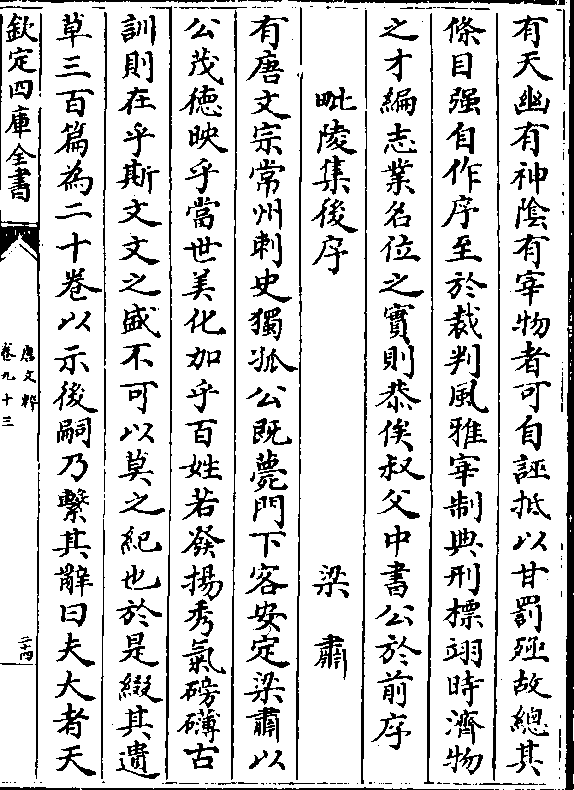 有天幽有神陰有宰物者可自誣抵以甘罰殛故總其
條目强自作序至於裁判風雅宰制典刑標翊時濟物
之才編志業名位之實則恭俟叔父中書公於前序
毗陵集後序 梁肅
有唐文宗常州刺史獨孤公既薨門下客安定梁肅以
公茂徳映乎當世美化加乎百姓若發揚秀氣磅礴古
訓則在乎斯文文之盛不可以莫之紀也於是綴其遺
草三百篇為二十卷以示後嗣乃繫其辭曰夫大者天
欽定四庫全書
唐文粹
卷九十三
二十四